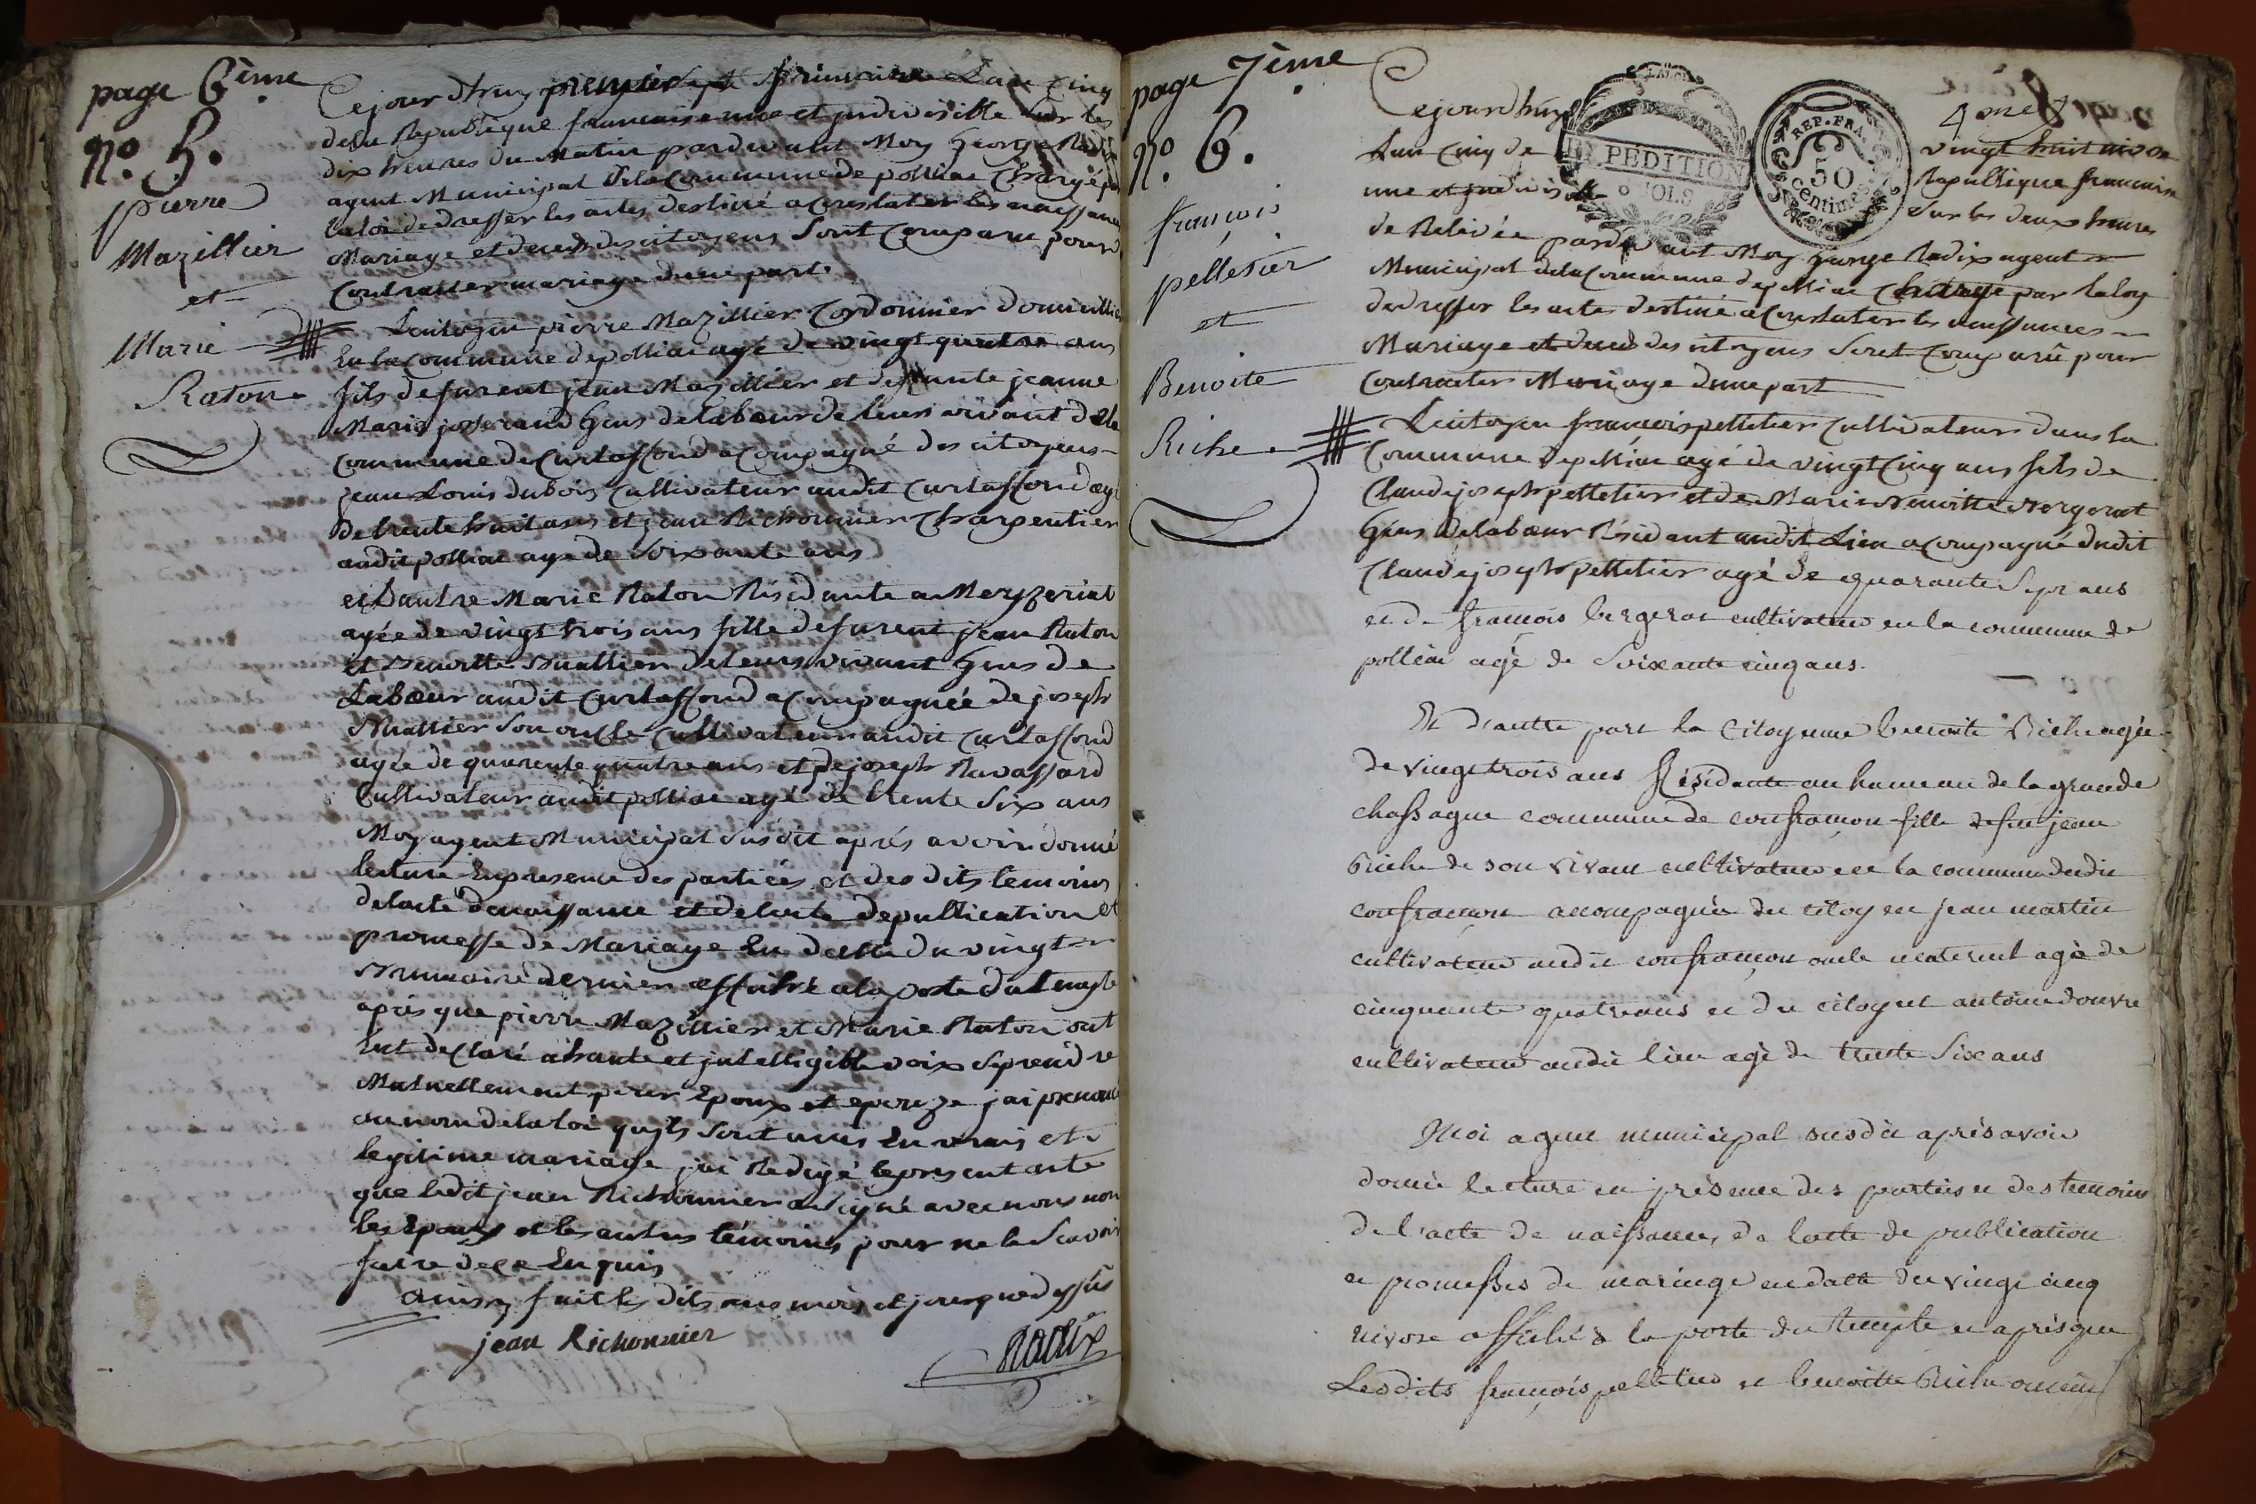 page 6ème
n.º 5.
pierre
Mazillier
et
Marie
Raton.
Cejourdhuy premier frimaire Lan cinq
dela Republique francaise une et jndivisible sur les
dix heures du Matin pardevant Moy George Radix
agent Municipal dela Commune de polliac Chargé par
la loi de dresser les actes destiné a Constater les naissance
Mariage et decedes des citoyens Sont Comparu pour
Contracter mariage dune part
Lecitoyen pierre Mazillier Cordonnier domicillie
En la Commune depolliac agé de vingt quatre ans
fils defurent jean Mazillier et defunte jeanne
Marie josserand Gens delabeur de leurs vivant dela
Commune de Curtaffond acompagné des citoyens
jean Louis dubois Cultivateur audit Curtaffond agé
de trente huit ans et jean Richonnier Charpentier
audit polliac age de Soixante ans
et Dautre Marie Raton Residante a Mezzeriat
agée de vingt trois ans fille defurent jean Raton
et Benoitte Muallier de leurs vivant Gens de
Labeur audit Curtaffond acompagnée de joseph
Muallier Son oncle Cultivateur audit Curtaffond
agée de quarente quatre ans et de joseph Ravassard
Cultivateur audit polliac agé de trente Six ans
Moy agent Municipal Susdit après avoir donné
lecture En presence des partiées et des dits temoins
delacte denaissance et delacte depublication et
promesse de Mariage En datte du vingt
Brumaire dernier affiché ala porte du temple
après que pierre Mazillier et Marie Raton ont
Eut declaré ahaute et jntelligible voix Seprendre
Mutuellement pour Epoux et epouze jai prenoncé
au nom dela loi quils Sont unis En vrais et
legitime mariage jai Redigé lepresent acte
que ledit jean Richonnier a Signé avec nous non
les Epoux et les autres témoins pour ne le Scavoir
faire de ce Enquis
ainsy fait les dits ans mois et jours que dessus
jean Richonnier
Radix
page 7ème
n.º 6.
françois
pelletier
et
Benoite
Riche.
EXPEDITION
SOLS
REP. FRA.
50
centimes
Cejourdhuy vingt huit nivose
Lan Cinq de Republique francaise
une et jndivisible Sur les deux heures
de Relevée pardevant Moy George Radix agent
Municipal dela Commune depolliac Charge par la loy
dedresser les actes destiné a Constater les naissances
Mariage et deceds des citoyens Sont Comparû pour
Contracter Mariage dune part
Lecitoyen françois pelletier Cultivateur dans la
Commune depolliac agé de vingt Cinq ans fils de
Claude joseph pelletier et de Marie Benoitte Bergerat
Gens delabeur Résidant audit Lieu acompagné dudit
Claude joseph pelletier agé de quarante Sept ans
et de françois bergerat cultivateur en la commune de
polliac agé de Soixante cinq ans.
Et d'autre part la Citoyenne benoite Riche agée
de vingt trois ans Résidante au hameau de la grande
chassagne commune de confrançon fille de feu jean
Riche de son vivant cultivateur en la commune dudit
confrançon accompagnée du citoyen jean martin
cultivateur audit confrançon oncle maternel agé de
cinquante quatre ans et du citoyen antoine douvre
cultivateur audit lieu agé de trente Six ans
Moi agent municipal susdit après avoir
donné lecture en présence des parties et des temoins
de l'acte de naissance, de lacte de publication
et promesses de mariage en datte du vingt cinq
nivose affiché à la porte du temple et après que
Lesdits françois pelletier et benoitte Riche